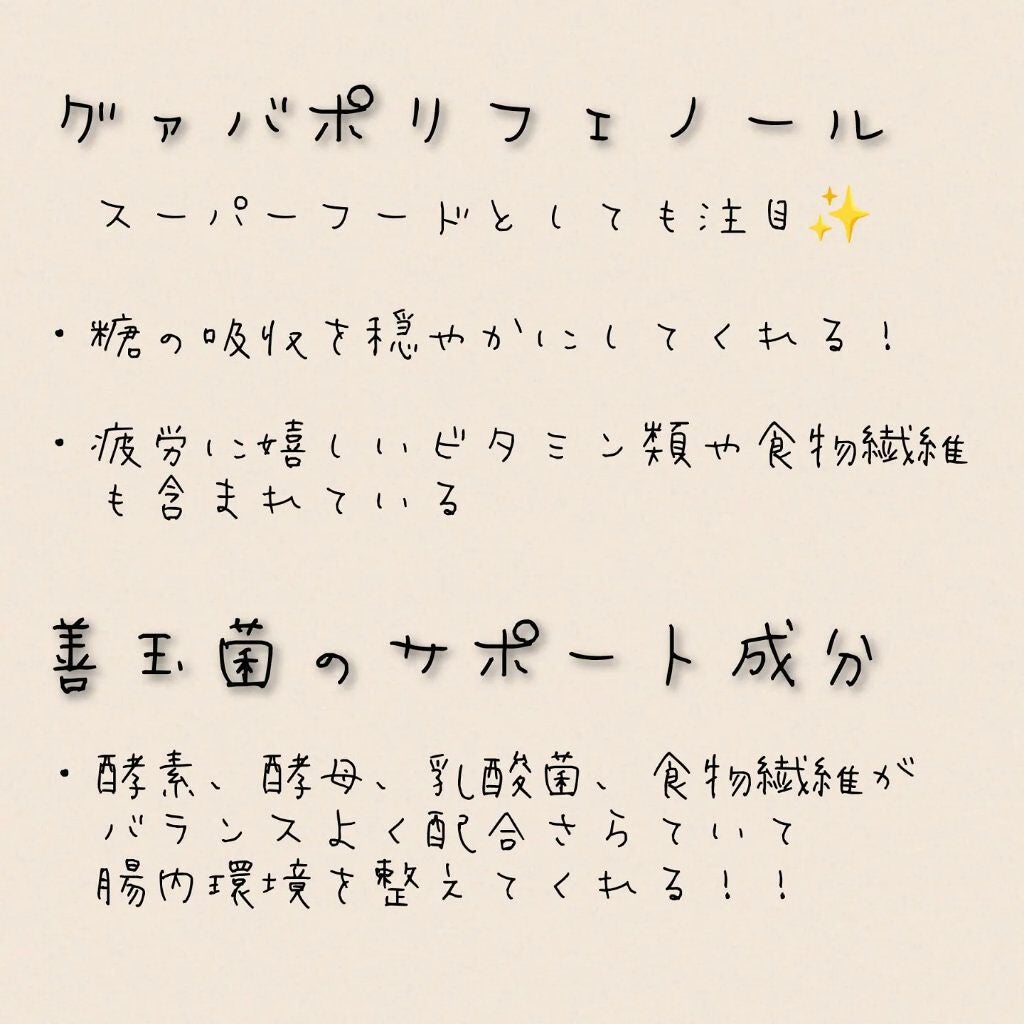 グァバポリフェノール
スーパーフードとしても注目✨
・糖の吸収を穏やかにしてくれる!
・疲労に嬉しいビタミン類や食物繊維
も含まれている
善玉菌のサポート成分
・酵素、酵母、乳酸菌、食物繊維が
バランスよく配合さらていて
腸内環境を整えてくれる!!